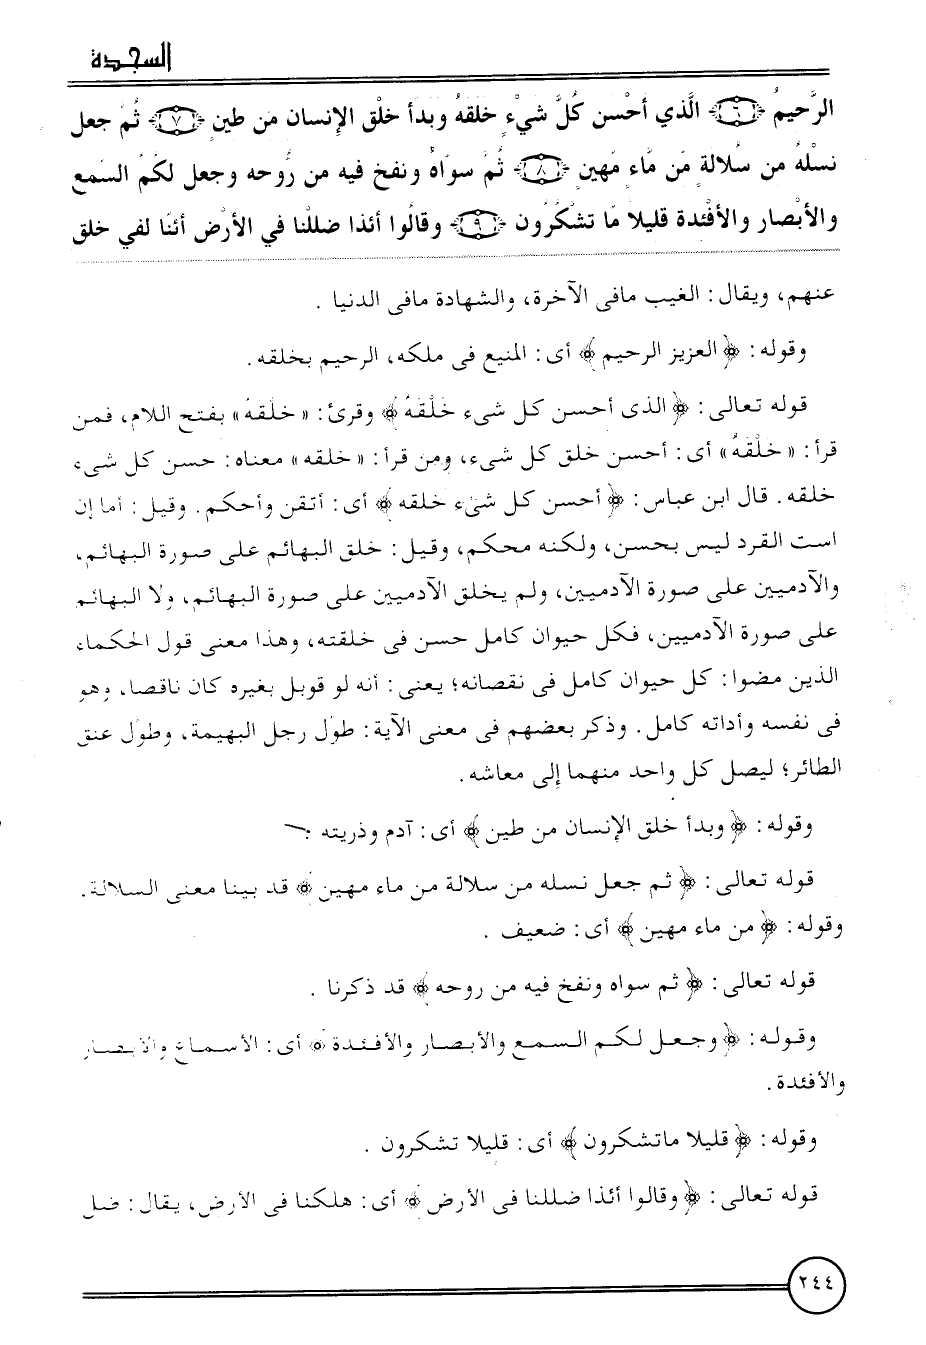 السجدة
الرَّحِيمُ ﴿٦﴾ الَّذي أَحْسَنَ كُلَّ شَيْءٍ خَلَقَهُ وَبَدَأَ خَلْقَ الإِنسَانِ مِن طِينٍ ﴿٧﴾ ثُمَّ جَعَلَ
نَسْلَهُ مِن سُلالَةٍ مِّن مَّاءٍ مَّهِينٍ ﴿٨﴾ ثُمَّ سَوَّاهُ وَنَفَخَ فِيهِ مِن رُّوحِهِ وَجَعَلَ لَكُمُ السَّمْعَ
وَالأَبْصَارَ وَالأَفْئِدَةَ قَلِيلا مَّا تَشْكُرُونَ ﴿٩﴾ وَقَالُوا أَئِذَا ضَلَلْنَا فِي الأَرْضِ أَئِنَّا لَفِي خَلْقٍ
عنهم، ويقال: الغيب مافى الآخرة، والشهادة مافى الدنيا .
وقوله: ﴿ العزيز الرحيم ﴾ أى: المنيع فى ملكه، الرحيم بخلقه.
قوله تعالى: ﴿ الذى أحسن كل شىء خَلْقَهُ ﴾ وقرئ: « خلَقَهُ » بفتح اللام، فمن
قرأ: « خلْقَهُ » أى: أحسن خلق كل شىء، ومن قرأ: « خلقه » معناه: حسن كل شىء
خلقه. قال ابن عباس: ﴿ أحسن كل شىء خلقه ﴾ أى: أتقن وأحكم. وقيل: أما إن
است القرد ليس بحسن، ولكنه محكم، وقيل: خلق البهائم على صورة البهائم،
والآدميين على صورة الآدميين، ولم يخلق الآدميين على صورة البهائم، ولا البهائم
على صورة الآدميين، فكل حيوان كامل حسن فى خلقته، وهذا معنى قول الحكماء
الذين مضوا: كل حيوان كامل فى نقصانه؛ يعنى: أنه لو قوبل بغيره كان ناقصا، وهو
فى نفسه وأداته كامل. وذكر بعضهم فى معنى الآية: طول رجل البهيمة، وطول عنق
الطائر؛ ليصل كل واحد منهما إلى معاشه.
وقوله: ﴿ وبدأ خلق الإنسان من طين ﴾ أى: آدم وذريته .
قوله تعالى: ﴿ ثم جعل نسله من سلالة من ماء مهين ﴾ قد بينا معنى السلالة.
وقوله: ﴿ من ماء مهين ﴾ أى: ضعيف .
قوله تعالى: ﴿ ثم سواه ونفخ فيه من روحه ﴾ قد ذكرنا .
وقوله: ﴿ وجعل لكم السمع والأبصار والأفئدة ﴾ أى: الأسماع والأبصار
والأفئدة.
وقوله: ﴿ قليلا ماتشكرون ﴾ أى: قليلا تشكرون .
قوله تعالى: ﴿ وقالوا أئذا ضللنا فى الأرض ﴾ أى: هلكنا فى الأرض، يقال: ضل
٢٤٤